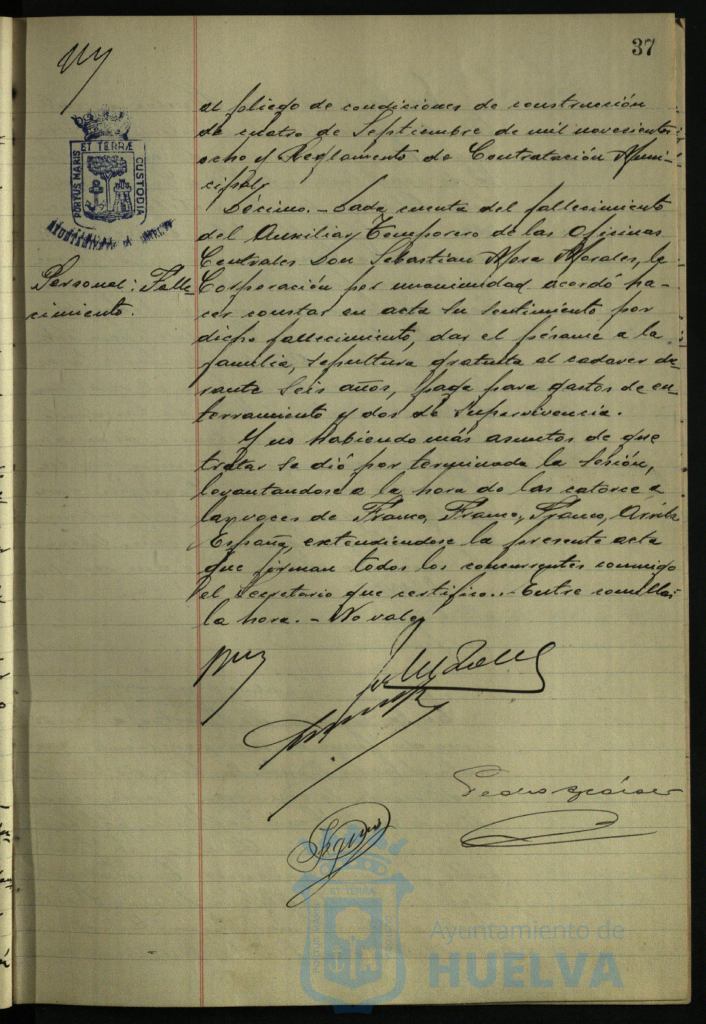 37
al pliego de condiciones de construcción
de cuatro de Septiembre de mil novecientos
ocho y Reglamento de Contratación Muni-
cipal,
PORTUS MARIS ET TERRÆ CUSTODIA
Décimo.- Dada cuenta del fallecimiento
del Auxiliar Temporero de las Oficinas
Centrales Don Sebastian Mora Morales, la
Personal: Falle-
cimiento.
Corporación por unanimidad acordó ha-
cer constar en acta su sentimiento por
dicho fallecimiento, dar el pésame a la
familia, sepultura gratuita al cadaver du-
rante seis años, paga para gastos de en-
terramiento y dos de supervivencia.
Y no habiendo más asuntos de que
tratar se dió por terminada la sesión,
levantandose a la hora de las catorce a
las voces de Franco, Franco, Franco, Arriba
España, extendiendose la presente acta
que firman todos los concurrentes conmigo
el Secretario que certifico.- Entre comillas
la hora.- No vale,
Pedro
ET TERRÆ
Ayuntamiento de
HUELVA